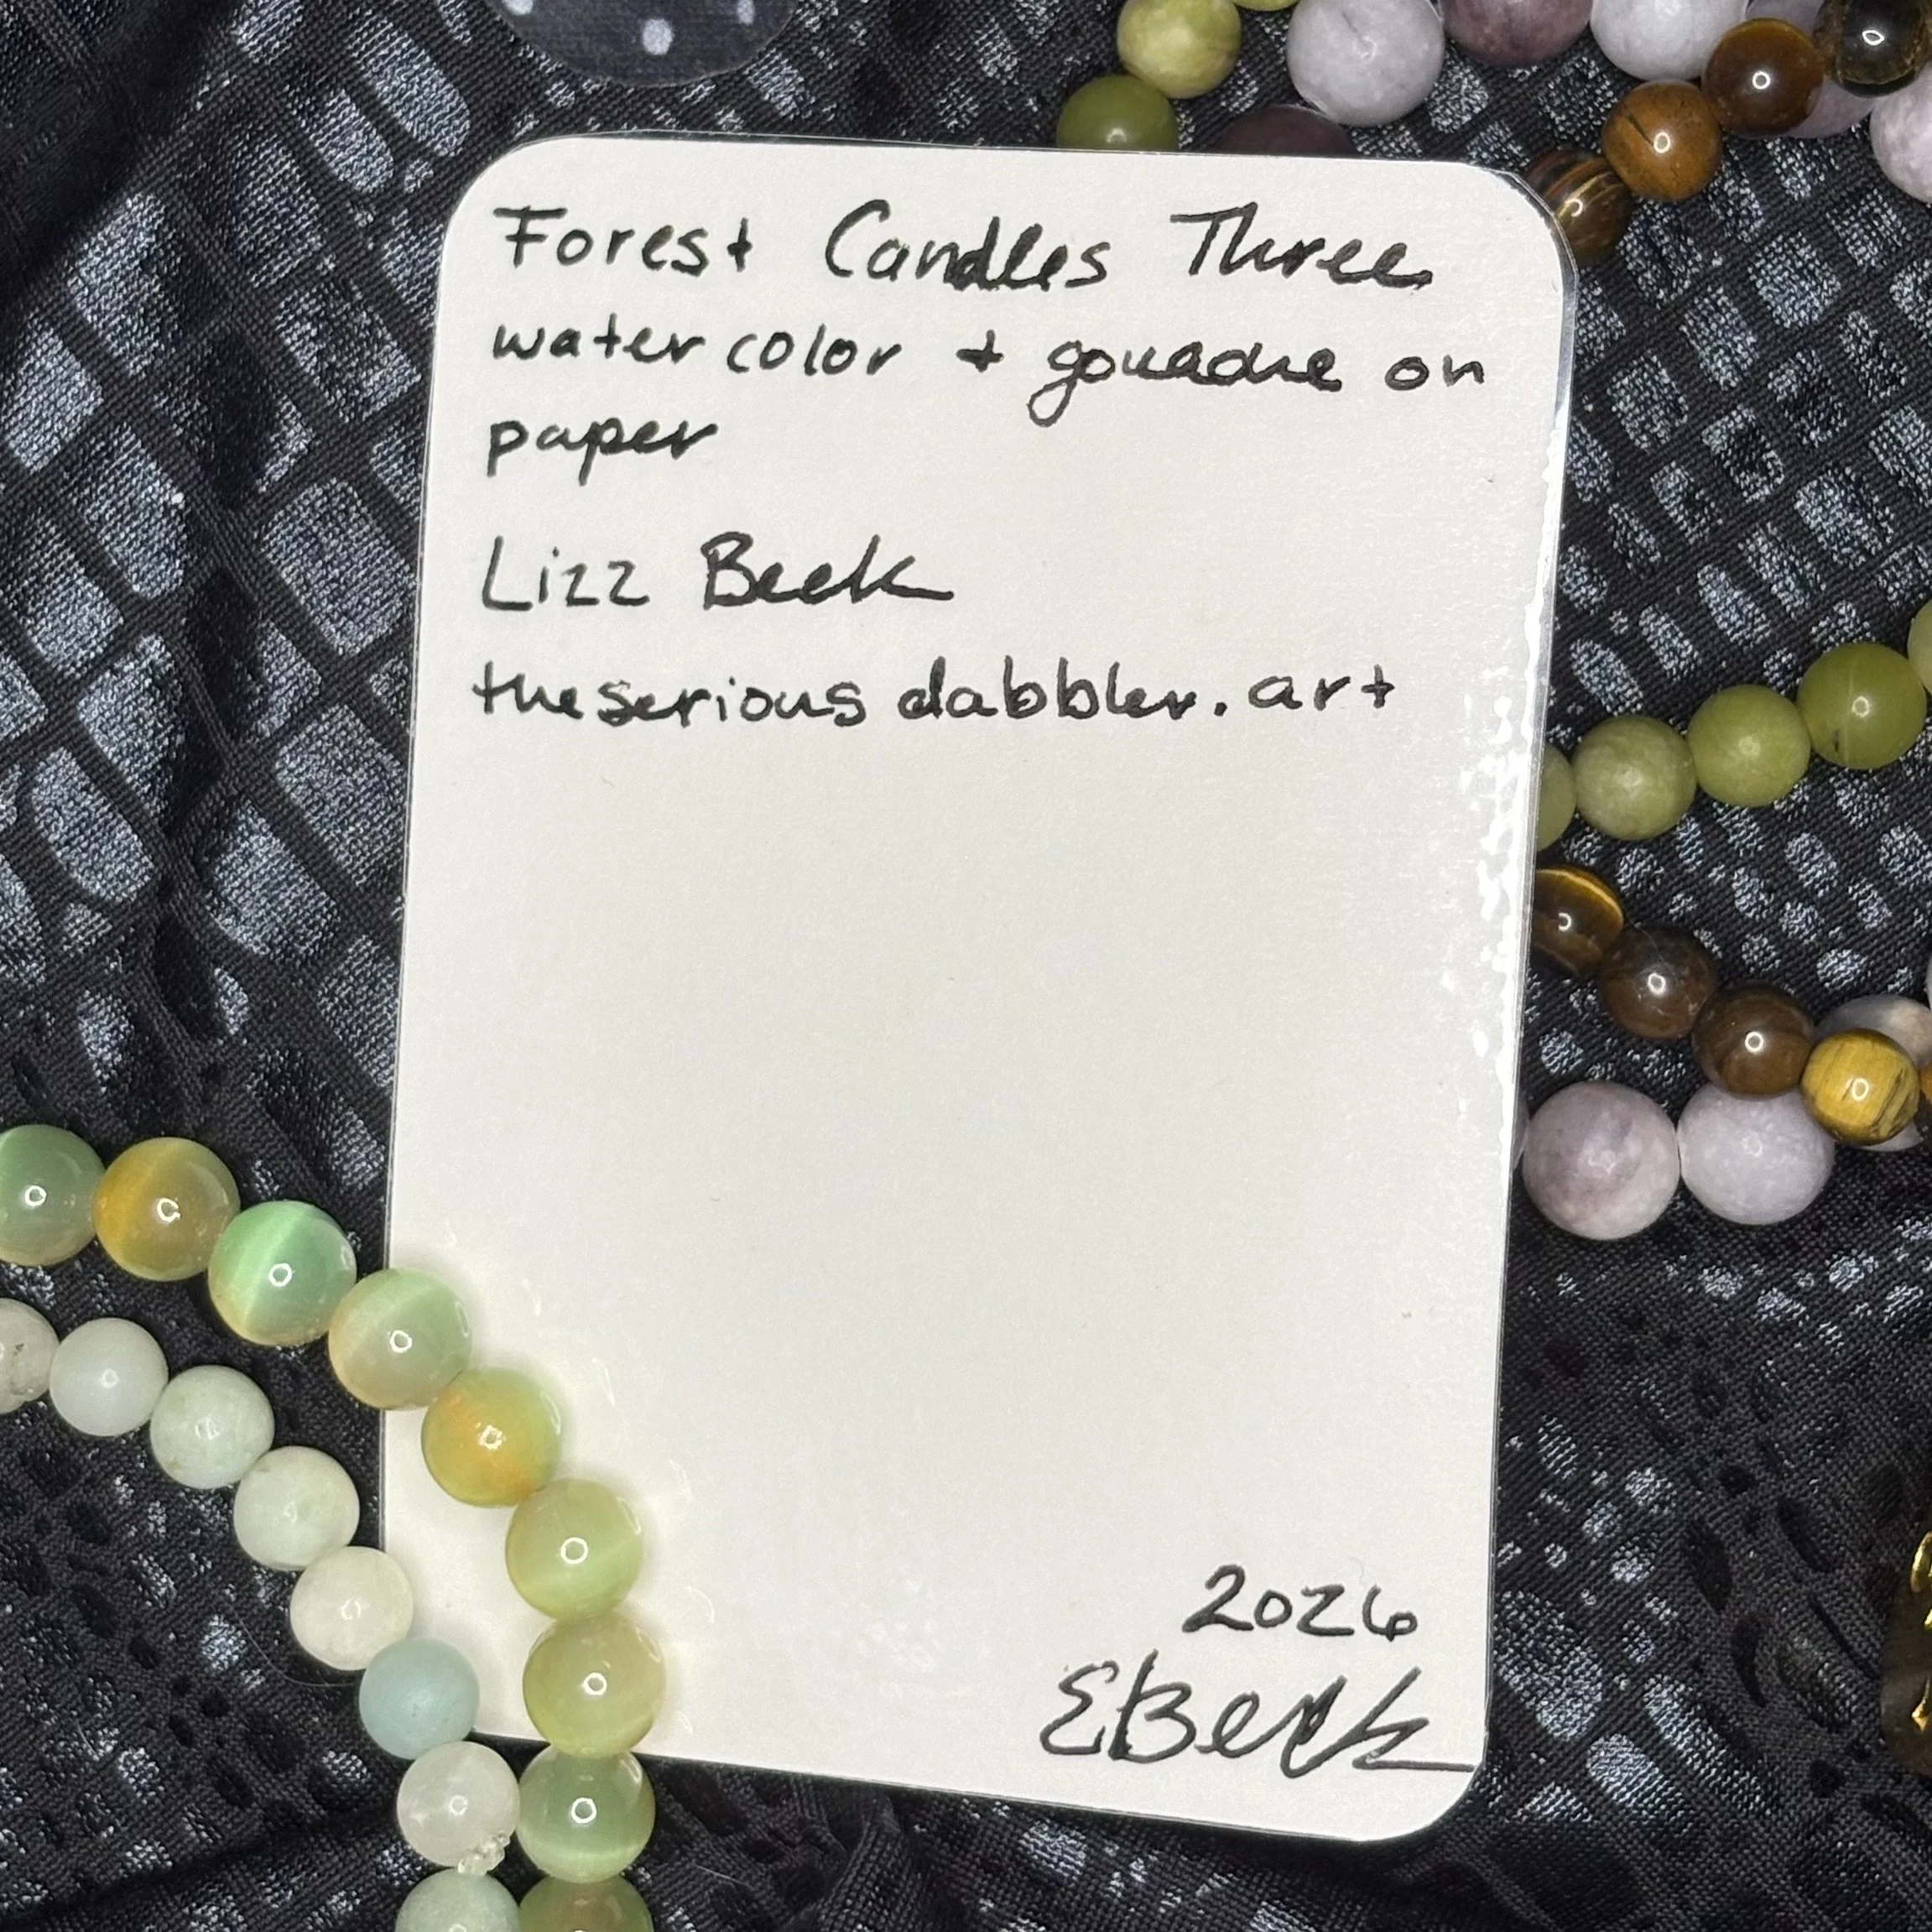 Forest Candles Three
watercolor + gouache on
paper
Lizz Beck
theseriousdabbler.art
2026
EBeck